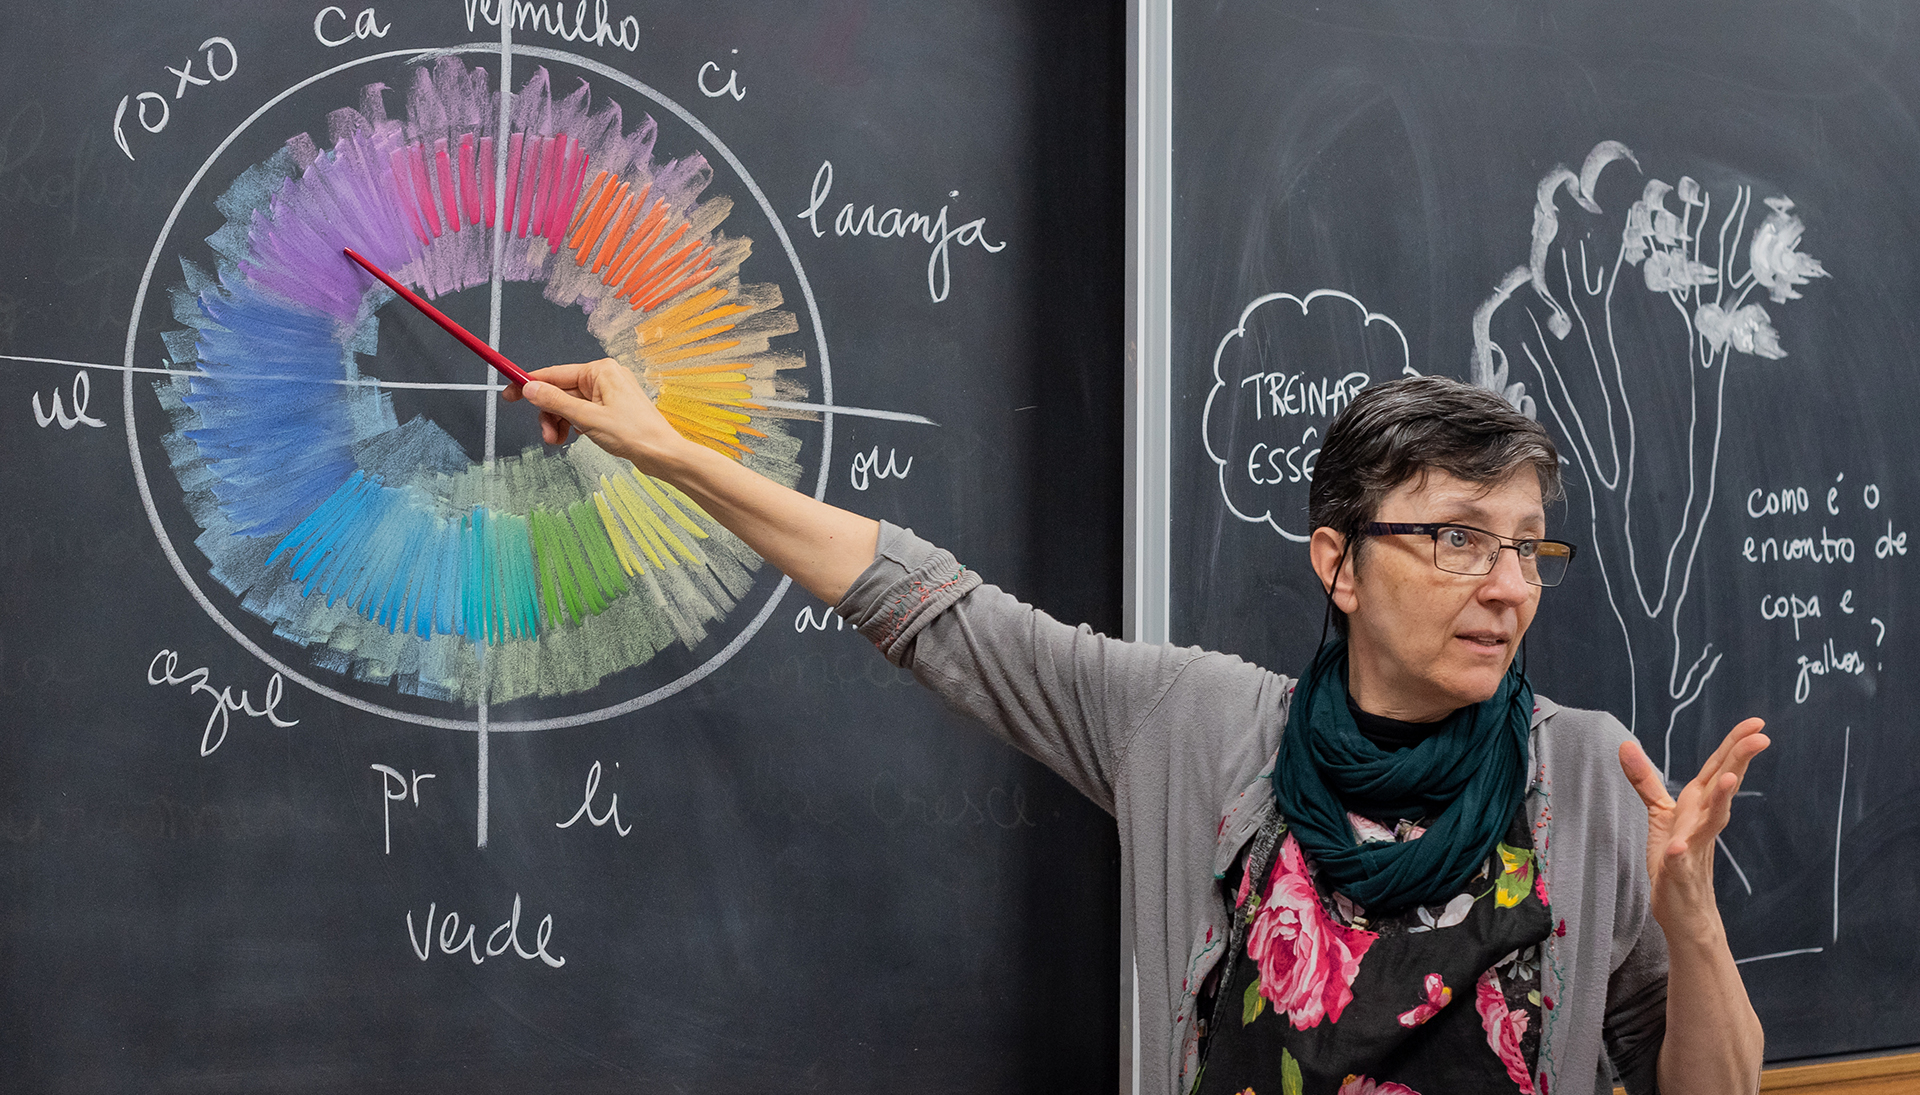 ca
vermelho
ci
roxo
laranja
ul
ou
azul
pr
li
verde
TREINAR
ESSÊ
como é o
encontro de
copa e
galhos?